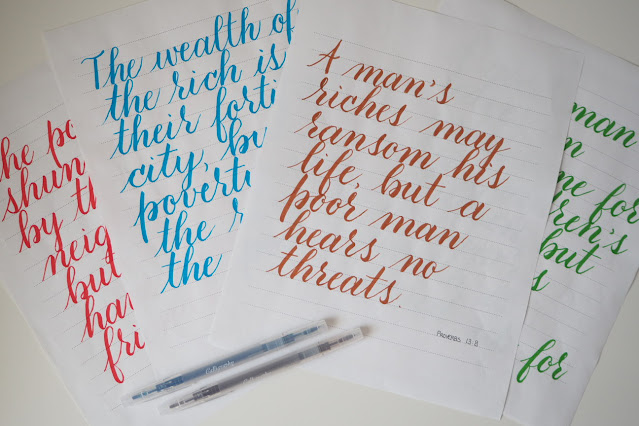 he po
shun
by th
neig
but
ha
fri
The wealth of
the rich is
their forti
city, bu
povert
the r
the
A man's
riches may
ransom his
life, but a
poor man
hears no
threats.
Proverbs 13:8
man
me for
ren's
but
s
for